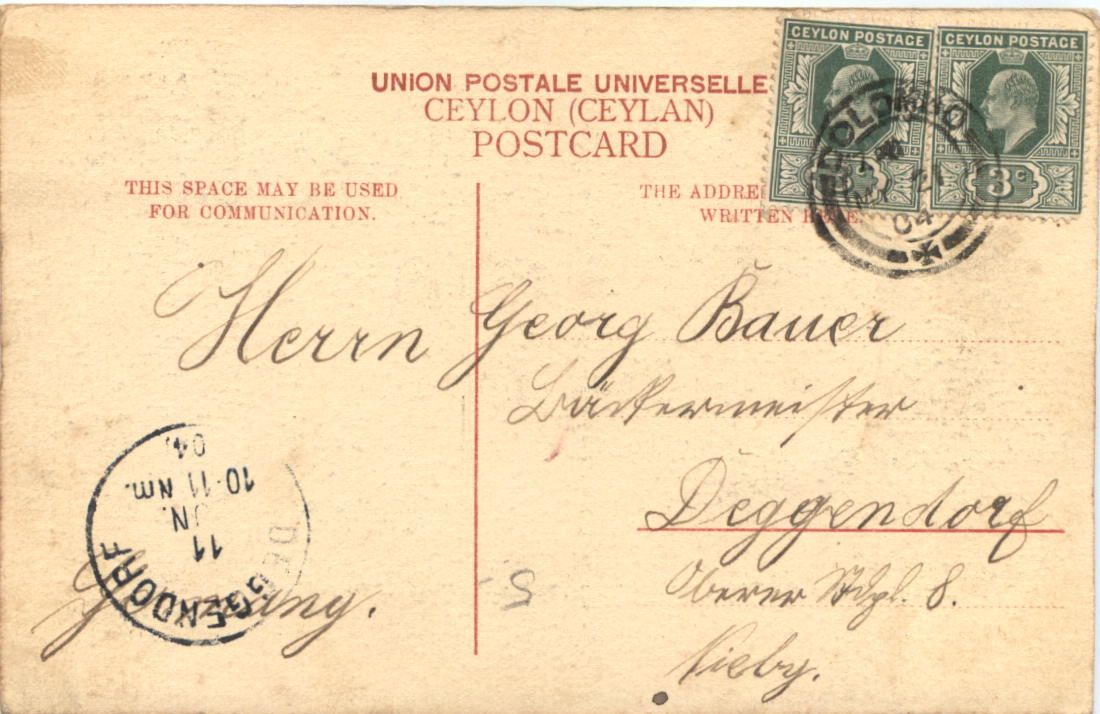 CEYLON POSTAGE CEYLON POSTAGE
3 C
UNION POSTALE UNIVERSELLE
CEYLON (CEYLAN)
POSTCARD
COLOMBO
04
THIS SPACE MAY BE USED
FOR COMMUNICATION.
THE ADDRE
WRITTEN
Herrn Georg Bauer
Bäckermeister
Deggendorf
Oberer Stdpl. 8.
Germany.
DEGGENDORF
11
JUN.
10-11 Nm.
04
5